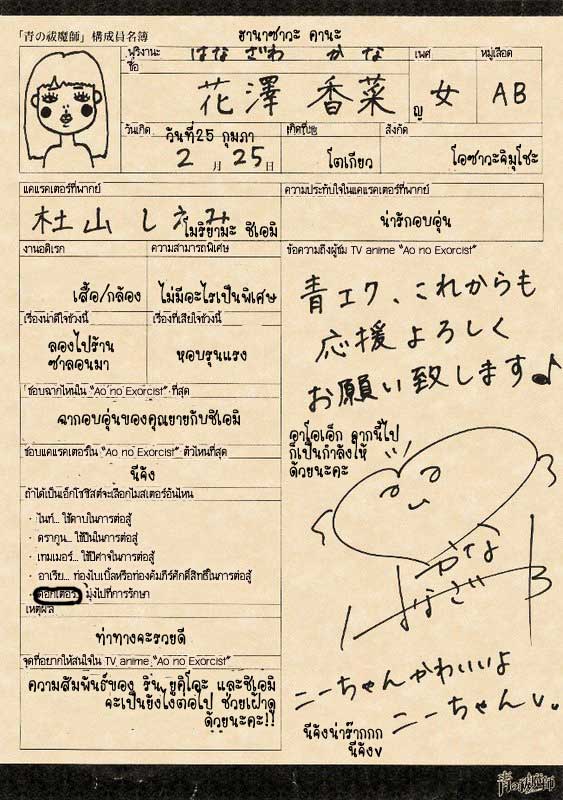 「青の祓魔師」構成員名簿
ฮานาซาวะ คานะ
ฟุริงานะ
はなざわ かな
เพศ
หมู่เลือด
ชื่อ
花澤 香菜
ญ
女
AB
วันเกิด
วันที่25 กุมภา
2月25日
เกิดที่
โตเกียว
สังกัด
โอซาวะจิมุโชะ
แคแรคเตอร์ที่พากย์
杜山しえみ
โมริยามะ ชิเอมิ
ความประทับใจในแคแรคเตอร์ที่พากย์
น่ารักอบอุ่น
งานอดิเรก
เสื้อ/กล้อง
ความสามารถพิเศษ
ไม่มีอะไรเป็นพิเศษ
ข้อความถึงผู้ชม TV anime "Ao no Exorcist"
青エク、これからも
応援よろしく
お願い致します♪
อาโอเอ็ก จากนี้ไป
ก็เป็นกำลังให้
ด้วยนะคะ
เรื่องน่าดีใจช่วงนี้
ลองไปร้าน
ซาลอนมา
เรื่องที่เสียใจช่วงนี้
หอบรุนแรง
ชอบฉากไหนใน "Ao no Exorcist" ที่สุด
ฉากอบอุ่นของคุณยายกับชิเอมิ
ชอบแคแรคเตอร์ใน "Ao no Exorcist" ตัวไหนที่สุด
นีจัง
ถ้าได้เป็นเอ็กโซซิสต์จะเลือกไมสเตอร์อันไหน
・ ไนท์... ใช้ดาบในการต่อสู้
・ ดรากูน... ใช้ปืนในการต่อสู้
・ เทมเมอร์... ใช้ปีศาจในการต่อสู้
・ อาเรีย... ท่องไบเบิ้ลหรือท่องคัมภีร์ศักดิ์สิทธิ์ในการต่อสู้
・ ดอกเตอร์.. มุ่งไปที่การรักษา
เหตุผล
ท่าทางจะรวยดี
จุดที่อยากให้สนใจใน TV anime "Ao no Exorcist"
ความสัมพันธ์ของ ริน ยูคิโอะ และชิเอมิ
จะเป็นยังไงต่อไป ช่วยเฝ้าดู
ด้วยนะคะ!!
かな
はなざわ
ニーちゃんかわいいよ
ニーちゃんv。
นีจังน่าร๊ากกก
นีจังv
青の祓魔師